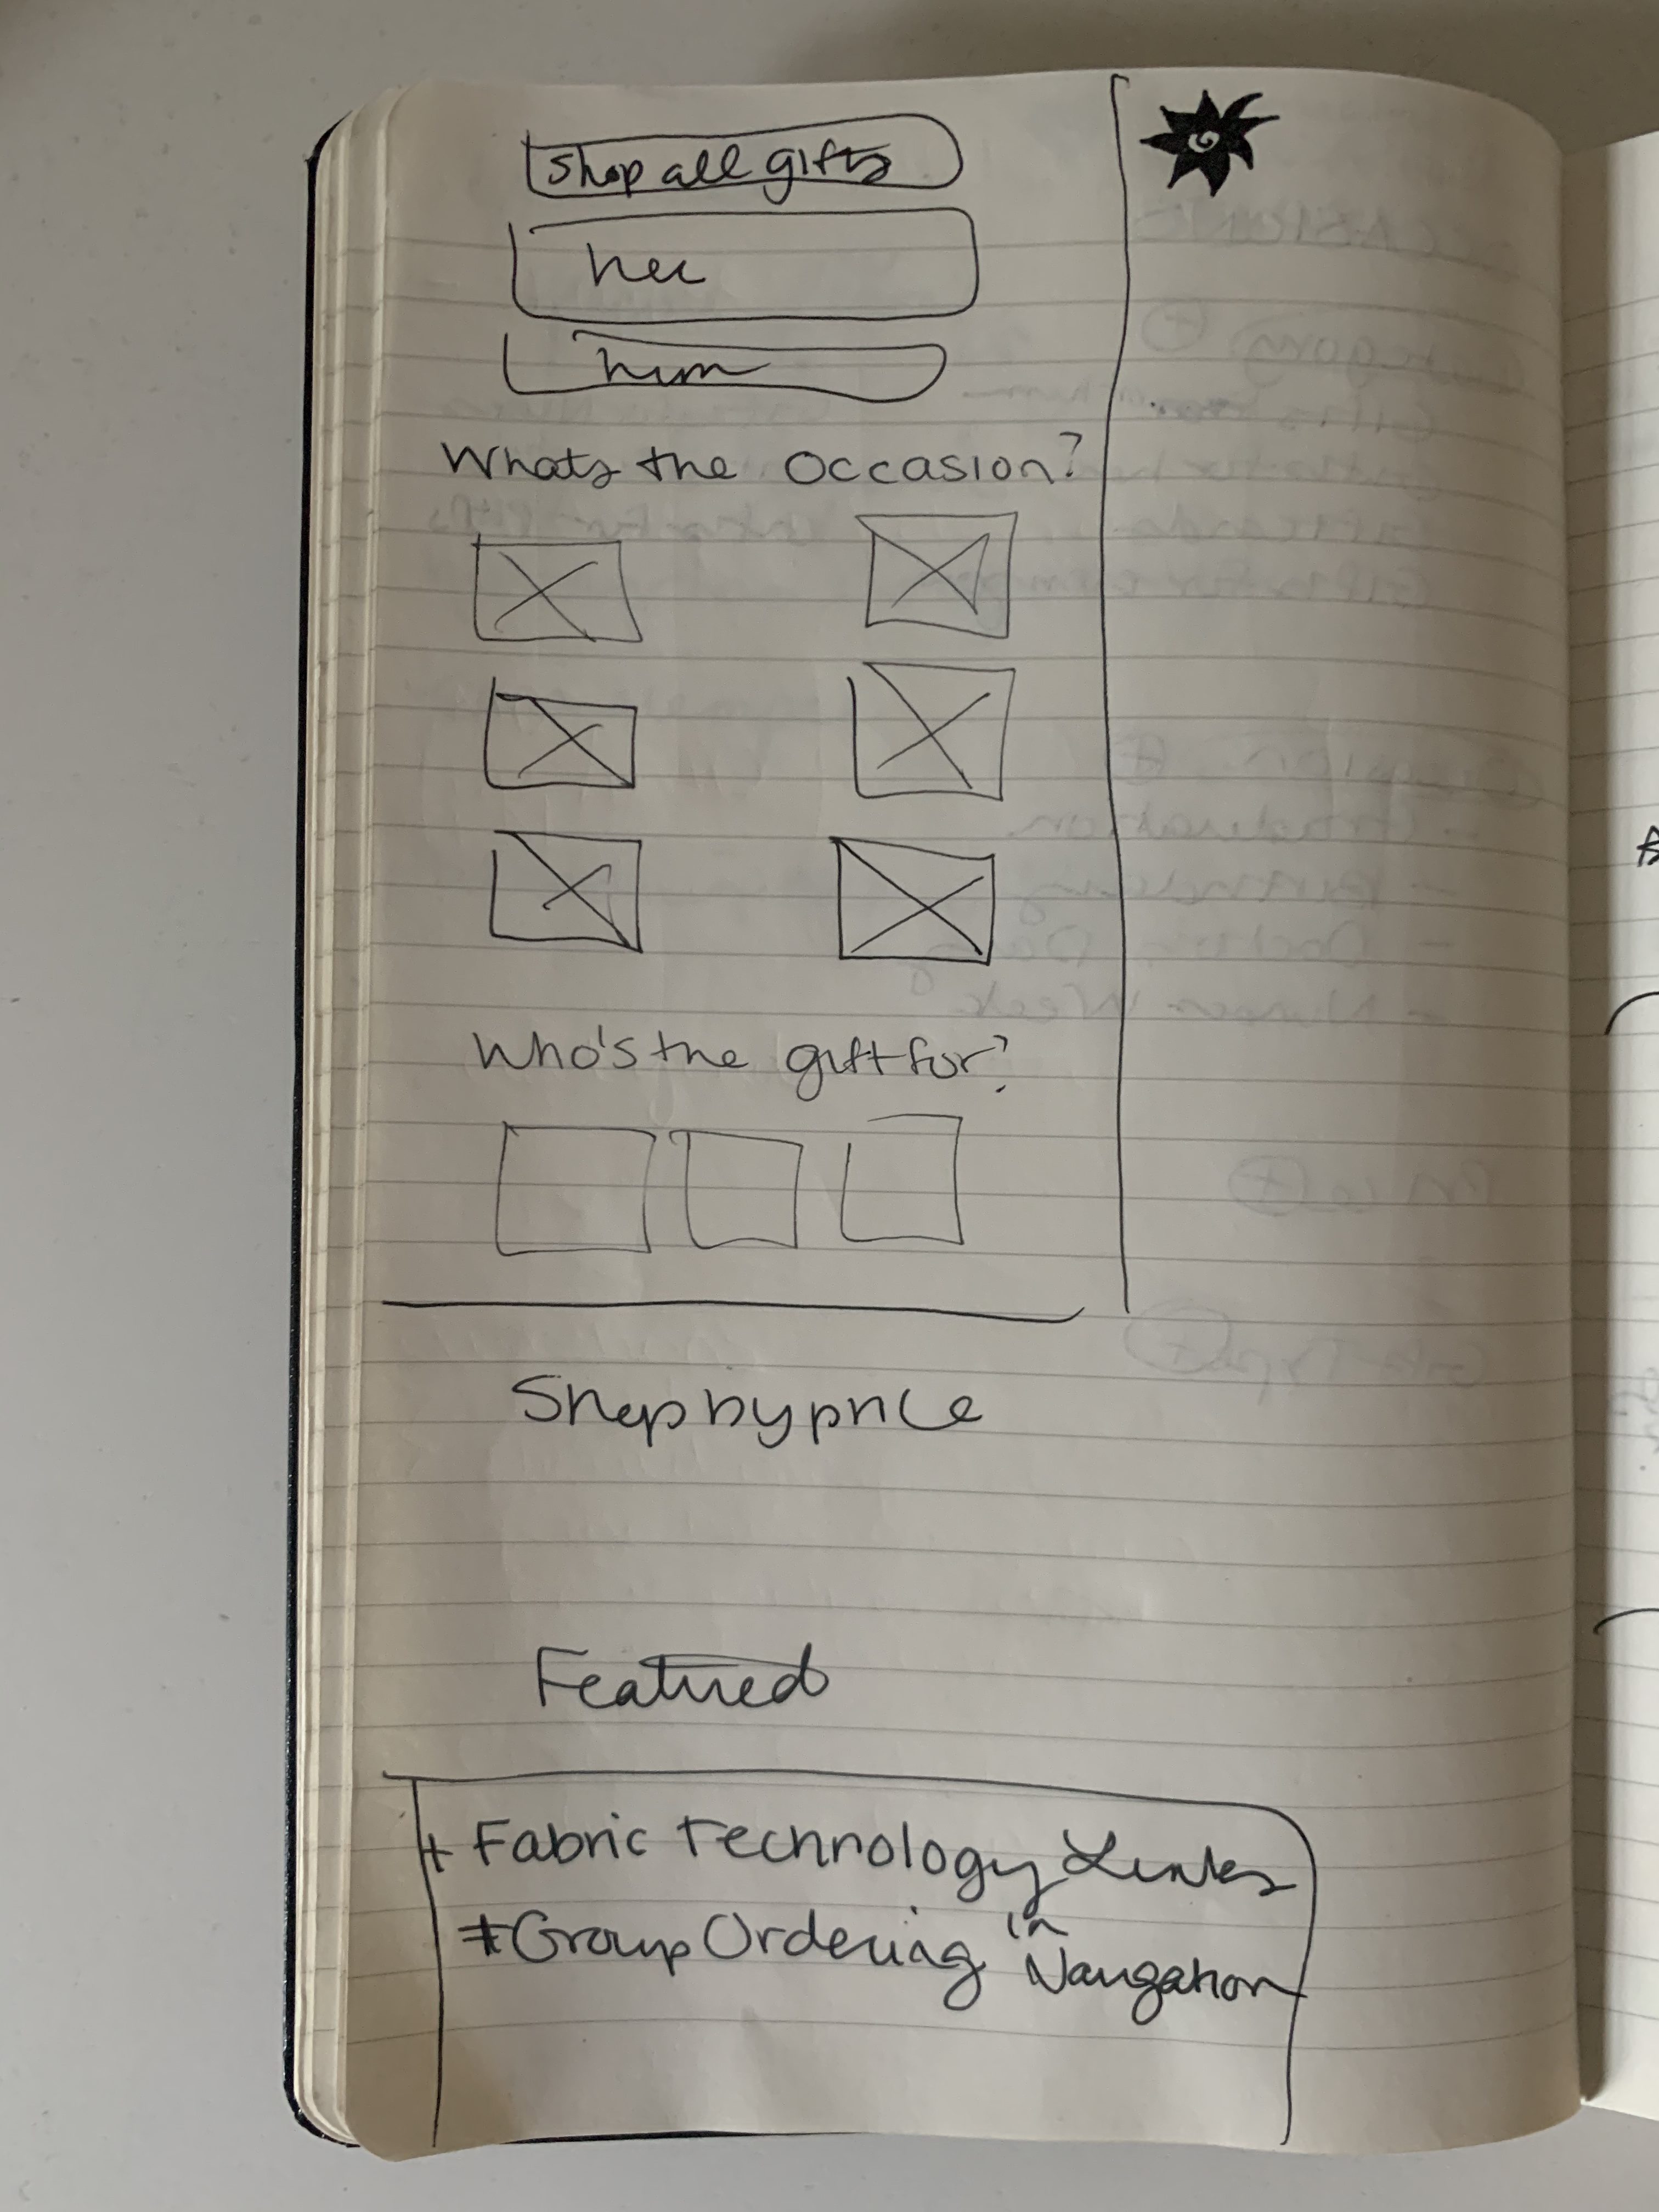 Shop all gifts
her
him
Whats the Occasion?
Who's the gift for?
Shop by price
Featured
+ Fabric Technology Links
*Group Ordering in Navigation